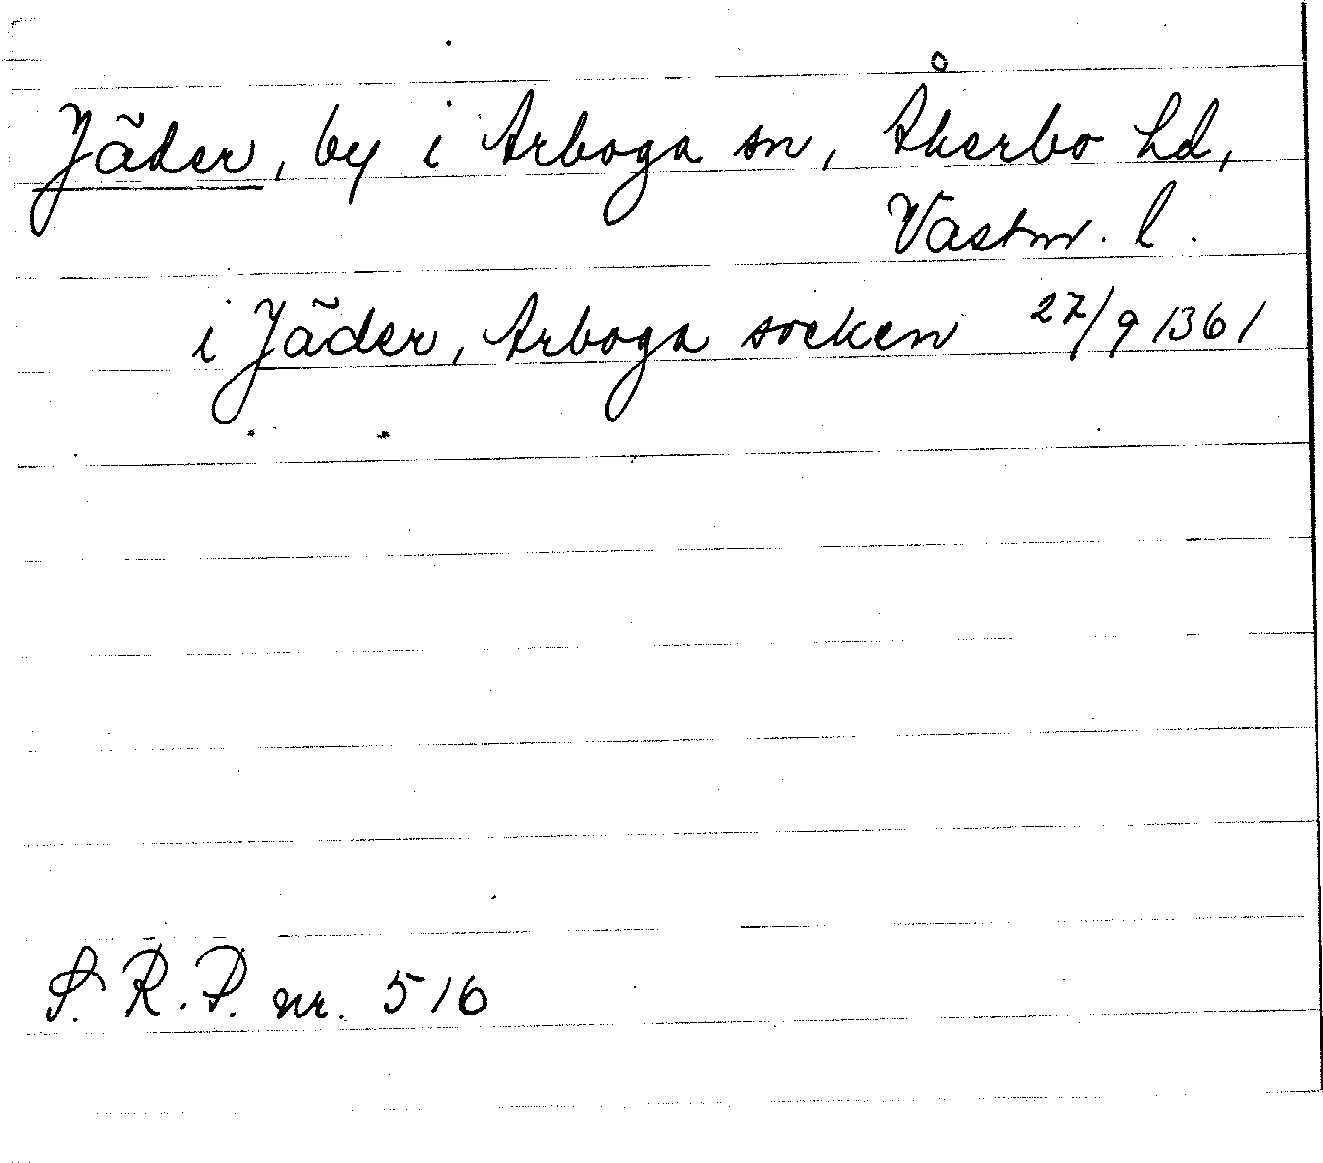 Jäder, by i Arboga sn, Åkerbo hd,
Västm. l.
i Jäder, Arboga socken 27/9 1361
S.R.P. nr. 516